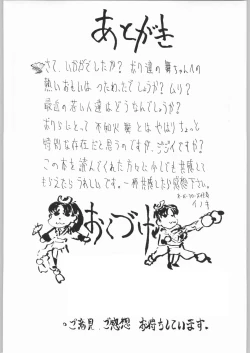 あとがき
さて、いかがでしたか? おり達の舞ちゃんへの
熱いおもいは つたわったでしょうか? ムリ?
最近の若い人達はどうなんでしょうか?
おりらにとって 不知火舞 とは やはりちょっと
特別な存在だと思うのですが、ジジイですか?
この本を読んでくれた方々に 少しでも 共感して
もらえたら うれしいです。〜 共感したら感想下さい。
おくづけ
ご意見、ご感想 お待ちしています。